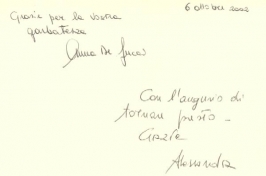 6 ottobre 2002
Grazie per la vostra
garbatezza
Anna De
Con l'augurio di
tornare presto -
Alessandra